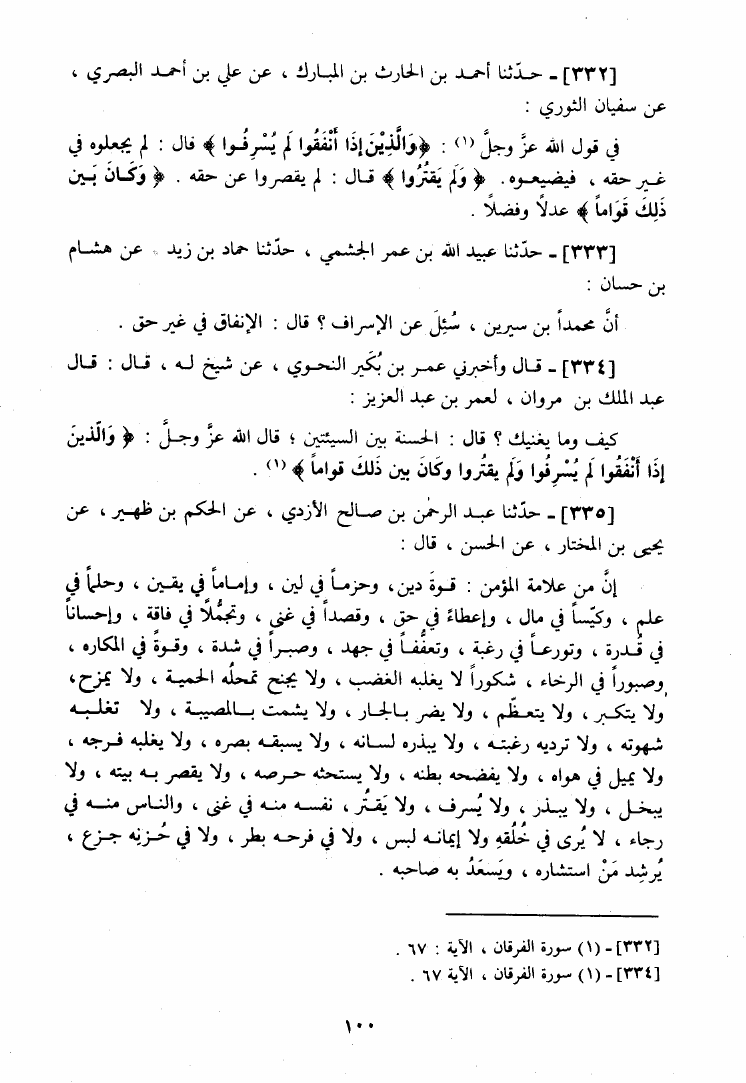 [٣٣٢] ـ حدّثنا أحمد بن الحارث بن المبارك ، عن علي بن أحمد البصري ،
عن سفيان الثوري :
في قول الله عزَّ وجلَّ (١) : ﴿ وَالَّذِيْنَ إذَا أَنْفَقُوا لَم يُسْرِفُوا ﴾ قال : لم يجعلوه في
غير حقه ، فيضيعوه. ﴿ وَلَم يَقتُرُوا ﴾ قال : لم يقصروا عن حقه . ﴿ وَكَانَ بَين
ذَلِكَ قَوَاماً ﴾ عدلاً وفضلاً .
[٣٣٣] ـ حدّثنا عبيد الله بن عمر الجشمي ، حدّثنا حماد بن زيد ، عن هشام
بن حسان :
أنَّ محمداً بن سيرين ، سُئِلَ عن الإسراف ؟ قال : الإنفاق في غير حق .
[٣٣٤] ـ قال وأخبرني عمر بن بُكَير النحوي ، عن شيخ له ، قال : قال
عبد الملك بن مروان ، لعمر بن عبد العزيز :
كيف وما يغنيك ؟ قال : الحسنة بين السيئتين ؛ قال الله عزَّ وجلَّ : ﴿ وَالَّذينَ
إذَا أَنْفَقُوا لَم يُسْرِفُوا وَلَم يقتُروا وكَانَ بين ذَلكَ قواماً ﴾ (١) .
[٣٣٥] ـ حدّثنا عبد الرحمٰن بن صالح الأزدي ، عن الحكم بن ظهير ، عن
يحيى بن المختار ، عن الحسن ، قال :
إنَّ من علامة المؤمن : قوةَ دين، وحزماً في لين ، وإماماً في يقين ، وحلماً في
علم ، وكيّساً في مال ، وإعطاءً في حق ، وقصداً في غنى ، وتجمُّلاً في فاقة ، وإحساناً
في قُدرة ، وتورعاً في رغبة ، وتعففاً في جهد ، وصبراً في شدة ، وقوةً في المكاره ،
وصبوراً في الرخاء ، شكوراً لا يغلبه الغضب ، ولا يجنح تمحلُه الحمية ، ولا يمزح،
ولا يتكبر ، ولا يتعظّم ، ولا يضر بالجار ، ولا يشمت بالمصيبة ، ولا تغلبه
شهوته ، ولا ترديه رغبته ، ولا يبذره لسانه ، ولا يسبقه بصره ، ولا يغلبه فرجه ،
ولا يميل في هواه ، ولا يفضحه بطنه ، ولا يستحثه حرصه ، ولا يقصر به بيته ، ولا
يبخل ، ولا يبذر ، ولا يُسرف ، ولا يَقتُر ، نفسه منه في غنى ، والناس منه في
رجاء ، لا يُرى في خُلُقهِ ولا إيمانه لبس ، ولا في فرحه بطر ، ولا في حُزنِه جزع ،
يُرشِد مَنْ استشاره ، ويَسعَدُ به صاحبه .
[٣٣٢] ـ (١) سورة الفرقان ، الآية : ٦٧ .
[٣٣٤] ـ (١) سورة الفرقان ، الآية ٦٧ .
١٠٠